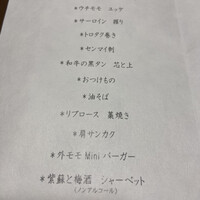 *ウチモモ ユッケ
*サーロイン 握り
*トロタク巻き
*センマイ刺
*和牛の黒タン 芯と上
*おつけもの
*油そば
*リブロース 藁焼き
*肩サンカク
*外モモMiniバーガー
*紫蘇と梅酒 シャーベット
(ノンアルコール)